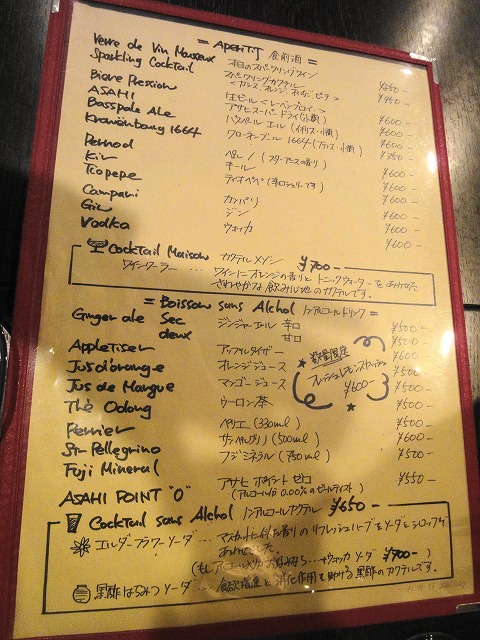 = Aperitif 食前酒 =
Verre de Vin Mousseux 本日のスパークリングワイン
Sparkling Cocktail スパークリングカクテル
Biere Pression 生ビール <レーベンブロイ>
ASAHI アサヒスーパードライ(小瓶) ¥600-
Basspale Ale バスペールエール (イギリス・小瓶) ¥600-
Kronenbourg 1664 クローネンブール 1664 (フランス・小瓶) ¥750-
Pernod ペルノ (スターアニスの香り) ¥600-
Kir キール ¥600-
Tiopepe ティオペペ (辛口シェリーです) ¥600-
Campari カンパリ ¥600-
Gin ジン ¥600-
Vodka ウォッカ ¥600-
Cocktail Maison カクテルメゾン ¥700-
ワインクーラー … ワインにオレンジの香りとトニックウォーターをあわせた
さわやかな飲み心地のカクテルです。
= Boisson sans Alchol ノンアルコールドリンク =
Ginger ale Sec ジンジャーエル 辛口 ¥500-
deux 甘口 ¥500-
Appletiser アップルタイザー ¥600-
Jus d'orange オレンジジュース ¥500-
Jus de Mangue マンゴージュース ¥500-
数量限定
フレッシュレモンスカッシュ
¥600-
Thè Oolong ウーロン茶 ¥500-
Perrier ペリエ (330ml) ¥500-
St-Pellegrino サンペルグリノ (500ml) ¥600-
Fuji Mineral フジミネラル (750ml) ¥500-
ASAHI POINT "0" アサヒ ポイント ゼロ ¥550-
(アルコール分 0.00%のビールテイスト)
Cocktail sans Alchol ノンアルコールカクテル ¥650-
エルダーフラワーソーダ … マスカットに似た香りのリフレッシュハーブをソーダとシロップで
あわせました。
+ウォッカソーダ ¥700-)
黒酢はちみつソーダ … 食欲増進と消化作用を助ける黒酢のカクテルです。